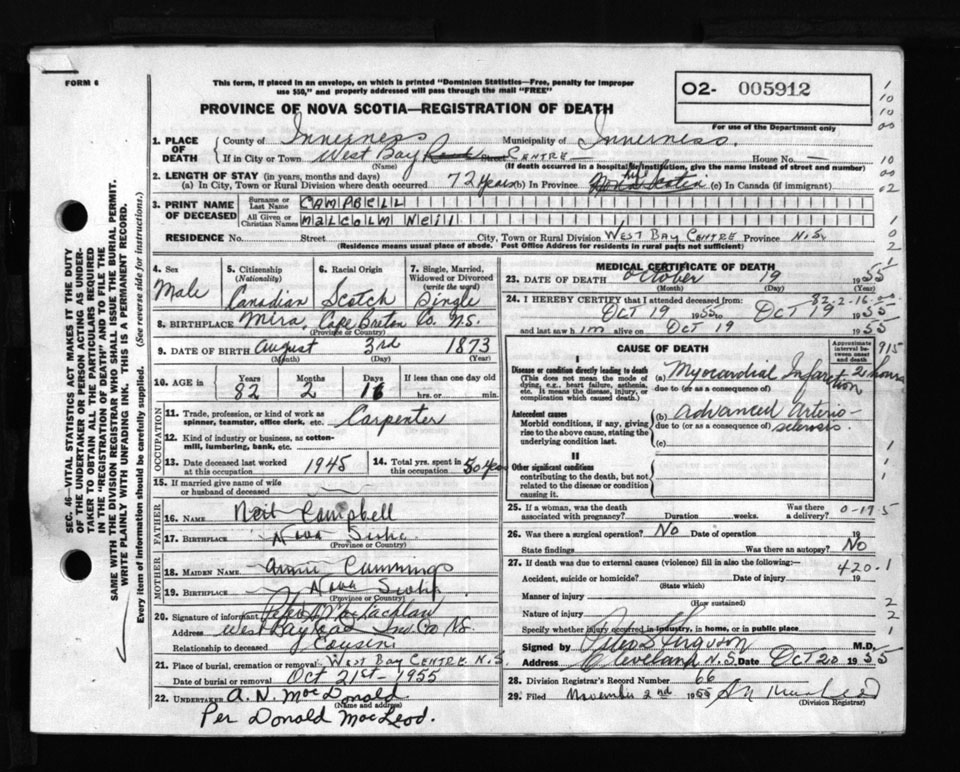 FORM 6
This form, if placed in an envelope, on which is printed "Dominion Statistics—Free, penalty for improper
use $50," and properly addressed will pass through the mail "FREE"
PROVINCE OF NOVA SCOTIA—REGISTRATION OF DEATH
O2- 005912
For use of the Department only
1. PLACE OF DEATH County of Inverness Municipality of Inverness.
If in City or Town West Bay Road Street CENTRE — House No. —
(Name) (If death occurred in a hospital or institution, give the name instead of street and number)
2. LENGTH OF STAY (in years, months and days)
(a) In City, Town or Rural Division where death occurred 72 years (b) In Province Nova Scotia (c) In Canada (if immigrant)
3. PRINT NAME OF DECEASED Surname or Last Name CAMPBELL
All Given or Christian Names MALCOLM NEIL
RESIDENCE No. Street City, Town or Rural Division WEST BAY CENTRE Province N.S.
(Residence means usual place of abode. Post Office Address for residents in rural parts not sufficient)
4. Sex Male
5. Citizenship (Nationality) Canadian
6. Racial Origin Scotch
7. Single, Married, Widowed or Divorced (write the word) Single
8. BIRTHPLACE Mira, Cape Breton Co. N.S.
(Province or Country)
9. DATE OF BIRTH August 3rd 1873
(Month) (Day) (Year)
10. AGE in Years 82 Months 2 Days 16 If less than one day old hrs. or min.
OCCUPATION
11. Trade, profession, or kind of work as spinner, teamster, office clerk, etc. Carpenter
12. Kind of industry or business, as cotton-mill, lumbering, bank, etc.
13. Date deceased last worked at this occupation 1945
14. Total yrs. spent in this occupation 50 years
15. If married give name of wife or husband of deceased
FATHER
16. NAME Neil Campbell
17. BIRTHPLACE Nova Scotia
(Province or Country)
MOTHER
18. MAIDEN NAME Annie Cummings
19. BIRTHPLACE Nova Scotia
(Province or Country)
20. Signature of informant MacLachlan
Address West Bay Road Inv. Co N.S.
Relationship to deceased Cousin
21. Place of burial, cremation or removal WEST BAY CENTRE N.S.
Date of burial or removal Oct 21st - 1955
22. UNDERTAKER A. N. MacDonald
(Name and address)
Per Donald MacLeod.
MEDICAL CERTIFICATE OF DEATH
23. DATE OF DEATH October 19 1955
(Month) (Day) (Year)
82-2-16
24. I HEREBY CERTIFY that I attended deceased from
Oct 19 1955 to Oct 19 1955
and last saw him alive on Oct 19 1955
CAUSE OF DEATH
Approximate interval between onset and death
915
I
Disease or condition directly leading to death
(This does not mean the mode of dying, e.g., heart failure, asthenia, etc. It means the disease, injury, or complication which caused death.)
(a) Myocardial Infarction 2 hours
due to (or as a consequence of)
Antecedent causes
Morbid conditions, if any, giving rise to the above cause, stating the underlying condition last.
(b) Advanced Arterio-sclerosis
due to (or as a consequence of)
(c)
II
Other significant conditions
contributing to the death, but not related to the disease or condition causing it.
25. If a woman, was the death associated with pregnancy? Duration weeks. Was there a delivery?
0-19 5
26. Was there a surgical operation? No Date of operation 19
State findings Was there an autopsy? No
27. If death was due to external causes (violence) fill in also the following:—
420.1
Accident, suicide or homicide? Date of injury 19
(State which)
Manner of injury
(How sustained)
Nature of injury
Specify whether injury occurred in industry, in home, or in public place
Signed by Ferguson M.D,
Address Cleveland N.S. Date Oct 20 1955
28. Division Registrar's Record Number 66
29. Filed November 2nd 1955
(Division Registrar)
SEC. 46—VITAL STATISTICS ACT MAKES IT THE DUTY
OF THE UNDERTAKER OR PERSON ACTING AS UNDER-
TAKER TO OBTAIN ALL THE PARTICULARS REQUIRED
IN THE "REGISTRATION OF DEATH" AND TO FILE THE
SAME WITH THE DIVISION REGISTRAR WHO SHALL ISSUE THE BURIAL PERMIT.
WRITE PLAINLY WITH UNFADING INK. THIS IS A PERMANENT RECORD.
Every item of information should be carefully supplied. (See reverse side for instructions.)